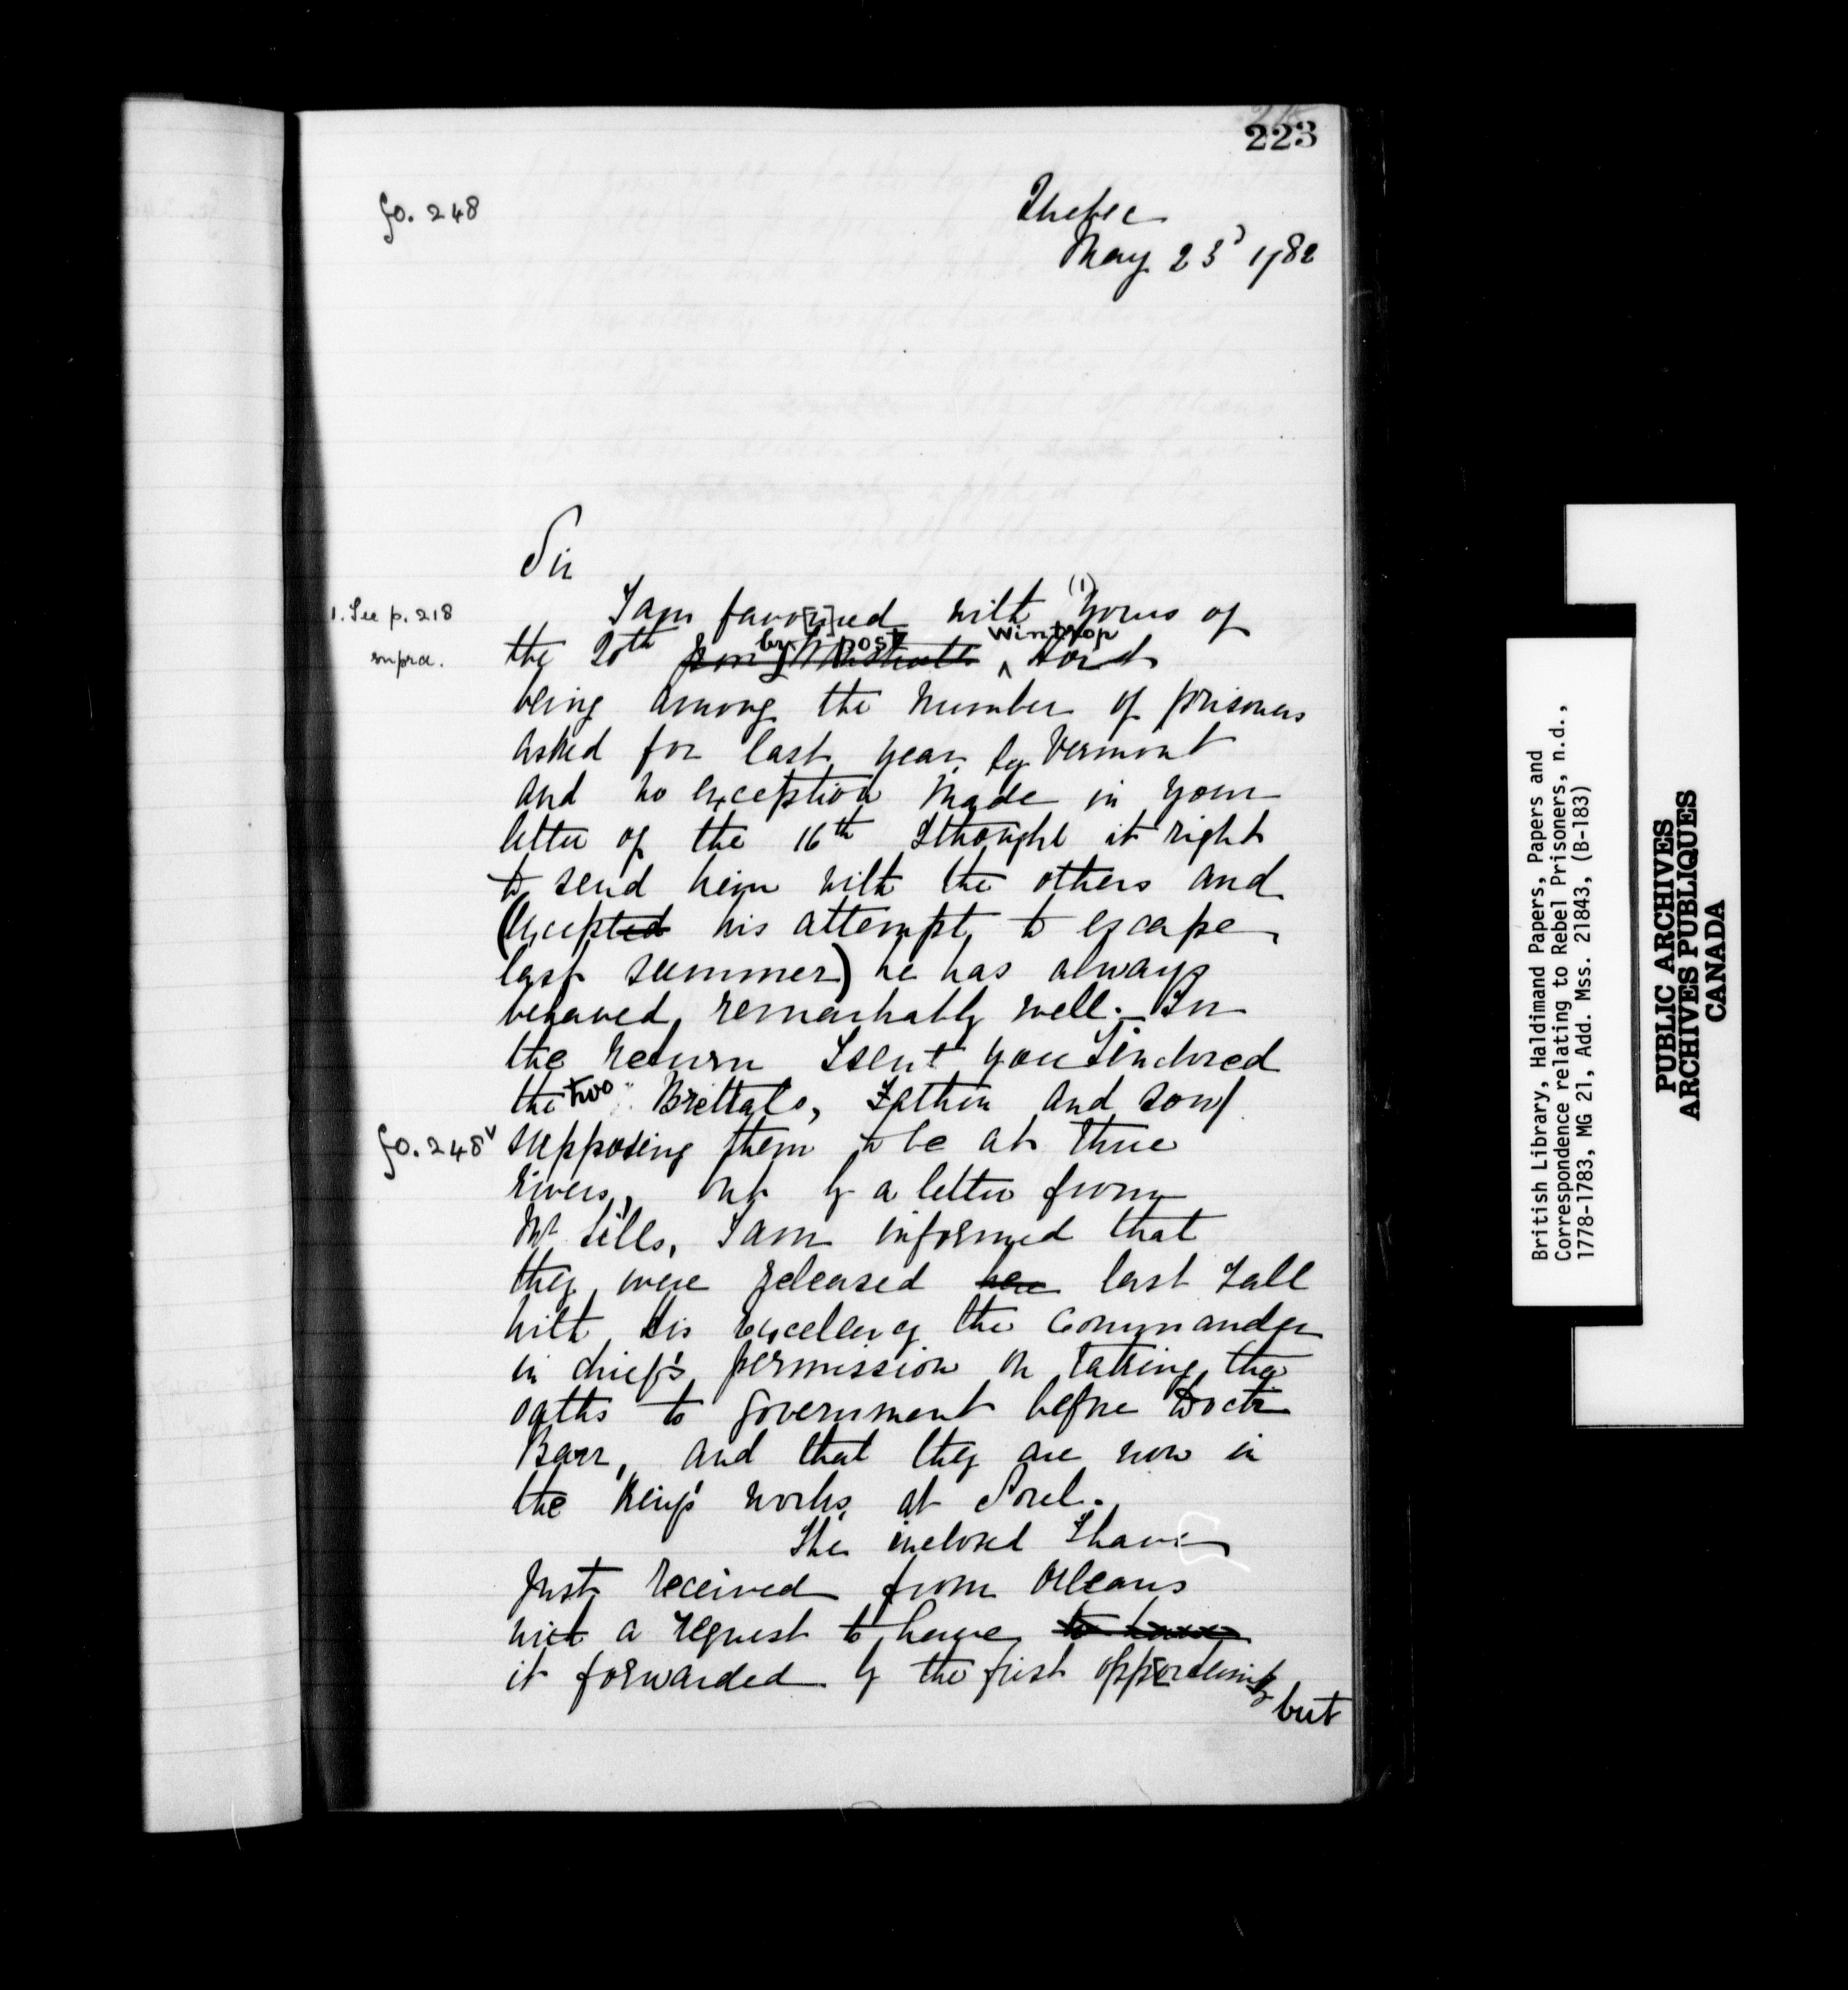 223
fo. 248
Quebec
May 23d 1782
Sir
1. See p. 218
supra.
I am favo[u]red with (1) yours of
the 20th by post Wintrop Hoit
being among the number of prisoners
asked for last year by Vermont
and no exception made in your
letter of the 16th I thought it right
to send him with the others and
(except his attempt to escape
last summer) he has always
behaved remarkably well. In
the return I sent you I inclosed
the two Brittals, Father and son
fo. 248v
supposing them to be at three
rivers, but by a letter from
Mr Sills, I am informed that
they were released last Fall
with His Excellency the Commander
in chief's permission on taking the
oaths to government before Doctr
Barr, and that they are now in
the King's works at Sorel.
The inclosed I have
just received from Orleans
with a request to have
it forwarded by the first opportunity
but
British Library, Haldimand Papers, Papers and
Correspondence relating to Rebel Prisoners, n.d.,
1778-1783, MG 21, Add. Mss. 21843, (B-183)
PUBLIC ARCHIVES
ARCHIVES PUBLIQUES
CANADA